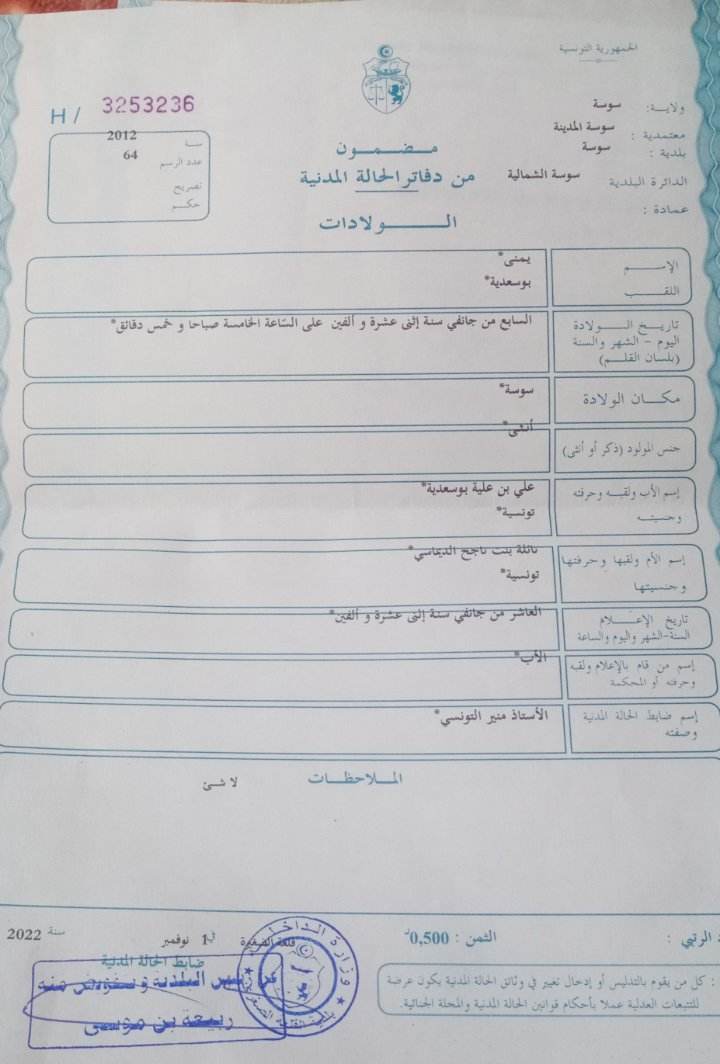 الجمهورية التونسية
H / 3253236
ولاية: سوسة
معتمدية : سوسة المدينة
بلدية : سوسة
الدائرة البلدية سوسة الشمالية
عمادة :
سنة 2012
عدد الرسم 64
تصريح
حكم
مضمون
من دفاتر الحالة المدنية
الولادات
الإسم يمنى*
اللقب بوسعدية*
تاريخ الولادة السابع من جانفي سنة إثنى عشرة و ألفين على السّاعة الخامسة صباحا و خمس دقائق*
اليوم - الشهر والسنة
(بلسان القلم)
مكان الولادة سوسة*
جنس المولود (ذكر أو أنثى) أنثى*
إسم الأب ولقبه وحرفته علي بن علية بوسعدية*
وجنسيته تونسية*
إسم الأم ولقبها وحرفتها نائلة بنت ناجح الديماسي*
وجنسيتها تونسية*
تاريخ الإعلام العاشر من جانفي سنة إثنى عشرة و ألفين*
السنة-الشهر واليوم والساعة
إسم من قام بالإعلام ولقبه الأب*
وحرفته أو المحكمة
إسم ضابط الحالة المدنية الأستاذ منير التونسي*
وصفته
الملاحظات
لا شئ
الرتبي :
الثمن : 0,500د
قلعة الصغيرة في 1 نوفمبر سنة 2022
ضابط الحالة المدنية
: كل من يقوم بالتدليس أو إدخال تغيير في وثائق الحالة المدنية يكون عرضة
للتتبعات العدلية عملا بأحكام قوانين الحالة المدنية والمجلة الجنائية.
وزارة الداخلية
عن رئيس البلدية وبتفويض منه
ربيعة بن موسى